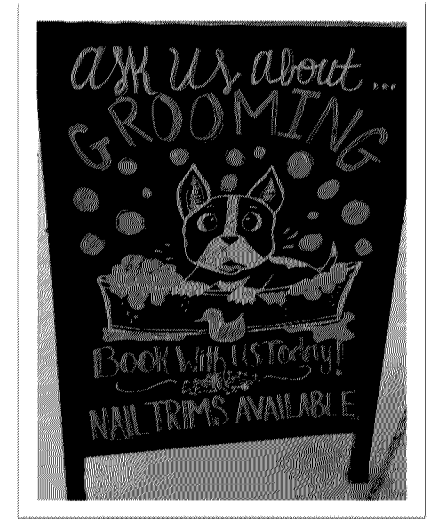 ask us about...
GROOMING
BOOK With US Today!
NAIL TRIMS AVAILABLE